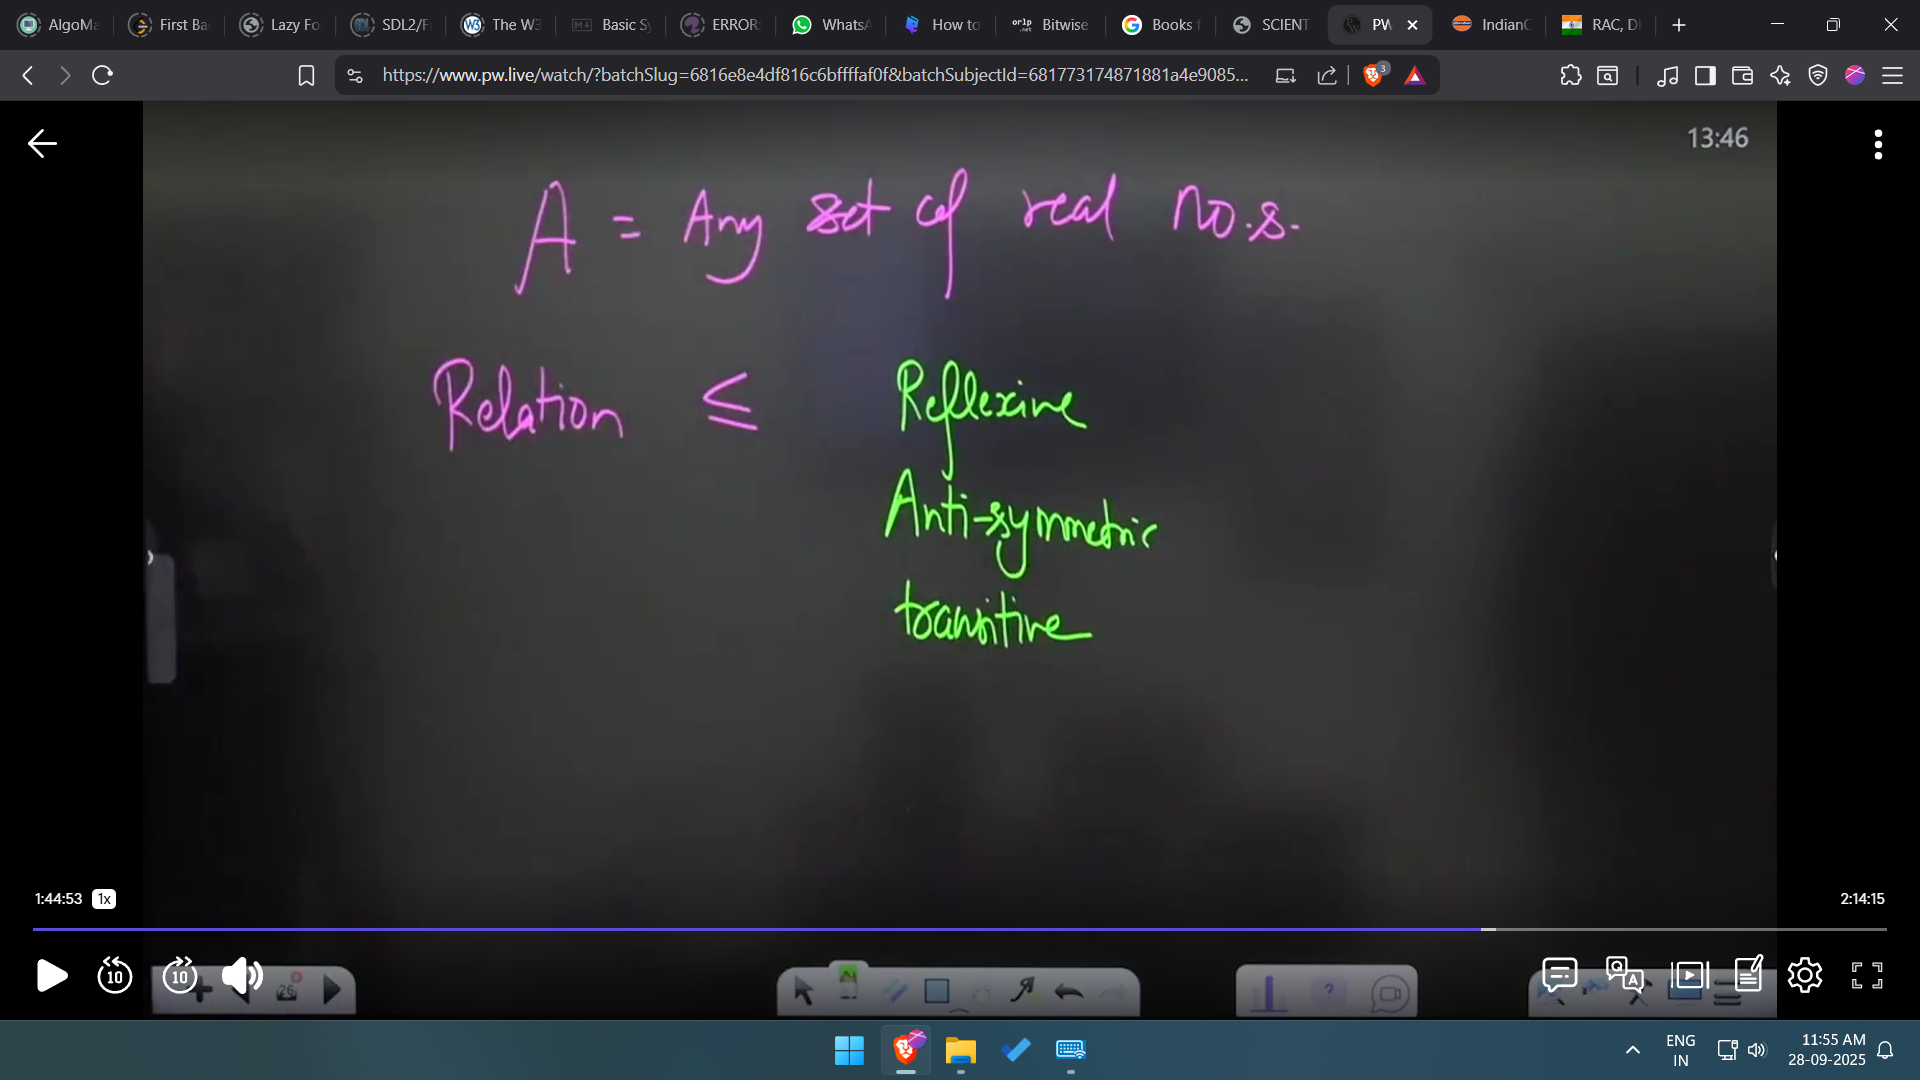 AlgoMa
First Ba
Lazy Fo
SDL2/F
The W3
Basic Sy
ERROR:
WhatsA
How to
Bitwise
Books f
SCIENT
PW
IndianO
RAC, D
https://www.pw.live/watch/?batchSlug=6816e8e4df816c6bffffaf0f&batchSubjectId=681773174871881a4e9085...
3
13:46
A = Any set of real no.s.
Relation ≤ Reflexive
Anti-symmetric
transitive
1:44:53 1x
2:14:15
10
10
26
ENG
IN
11:55 AM
28-09-2025